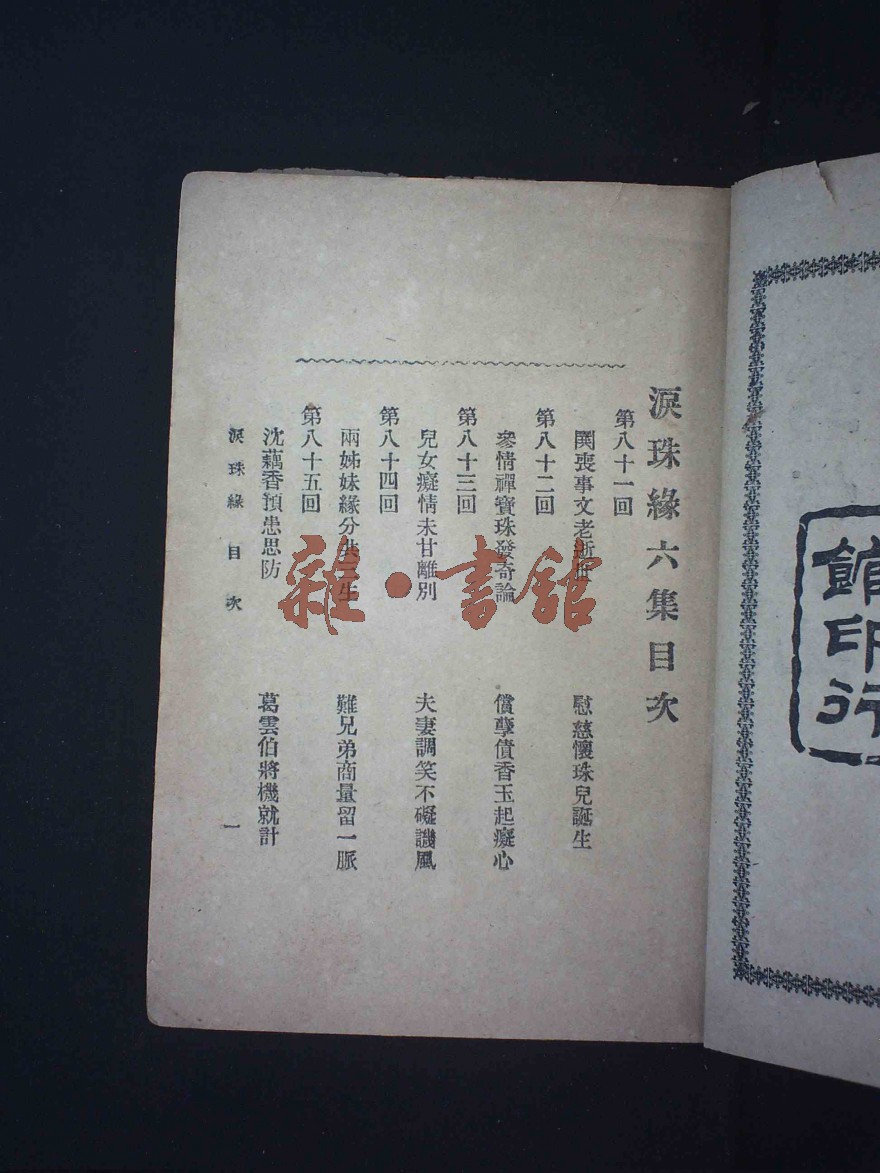 淚珠緣六集目次
第八十一回
閱喪事文老逝世 慰慈懷珠兒誕生
第八十二回
參情禪寶珠發奇論 償孽債香玉起癡心
第八十三回
兒女癡情未甘離別 夫妻調笑不礙譏風
第八十四回
兩姊妹緣分共三生 難兄弟商量留一脈
第八十五回
沈藕香預患思防 葛雲伯將機就計
淚珠緣 目次 一
館印行
雜·書館